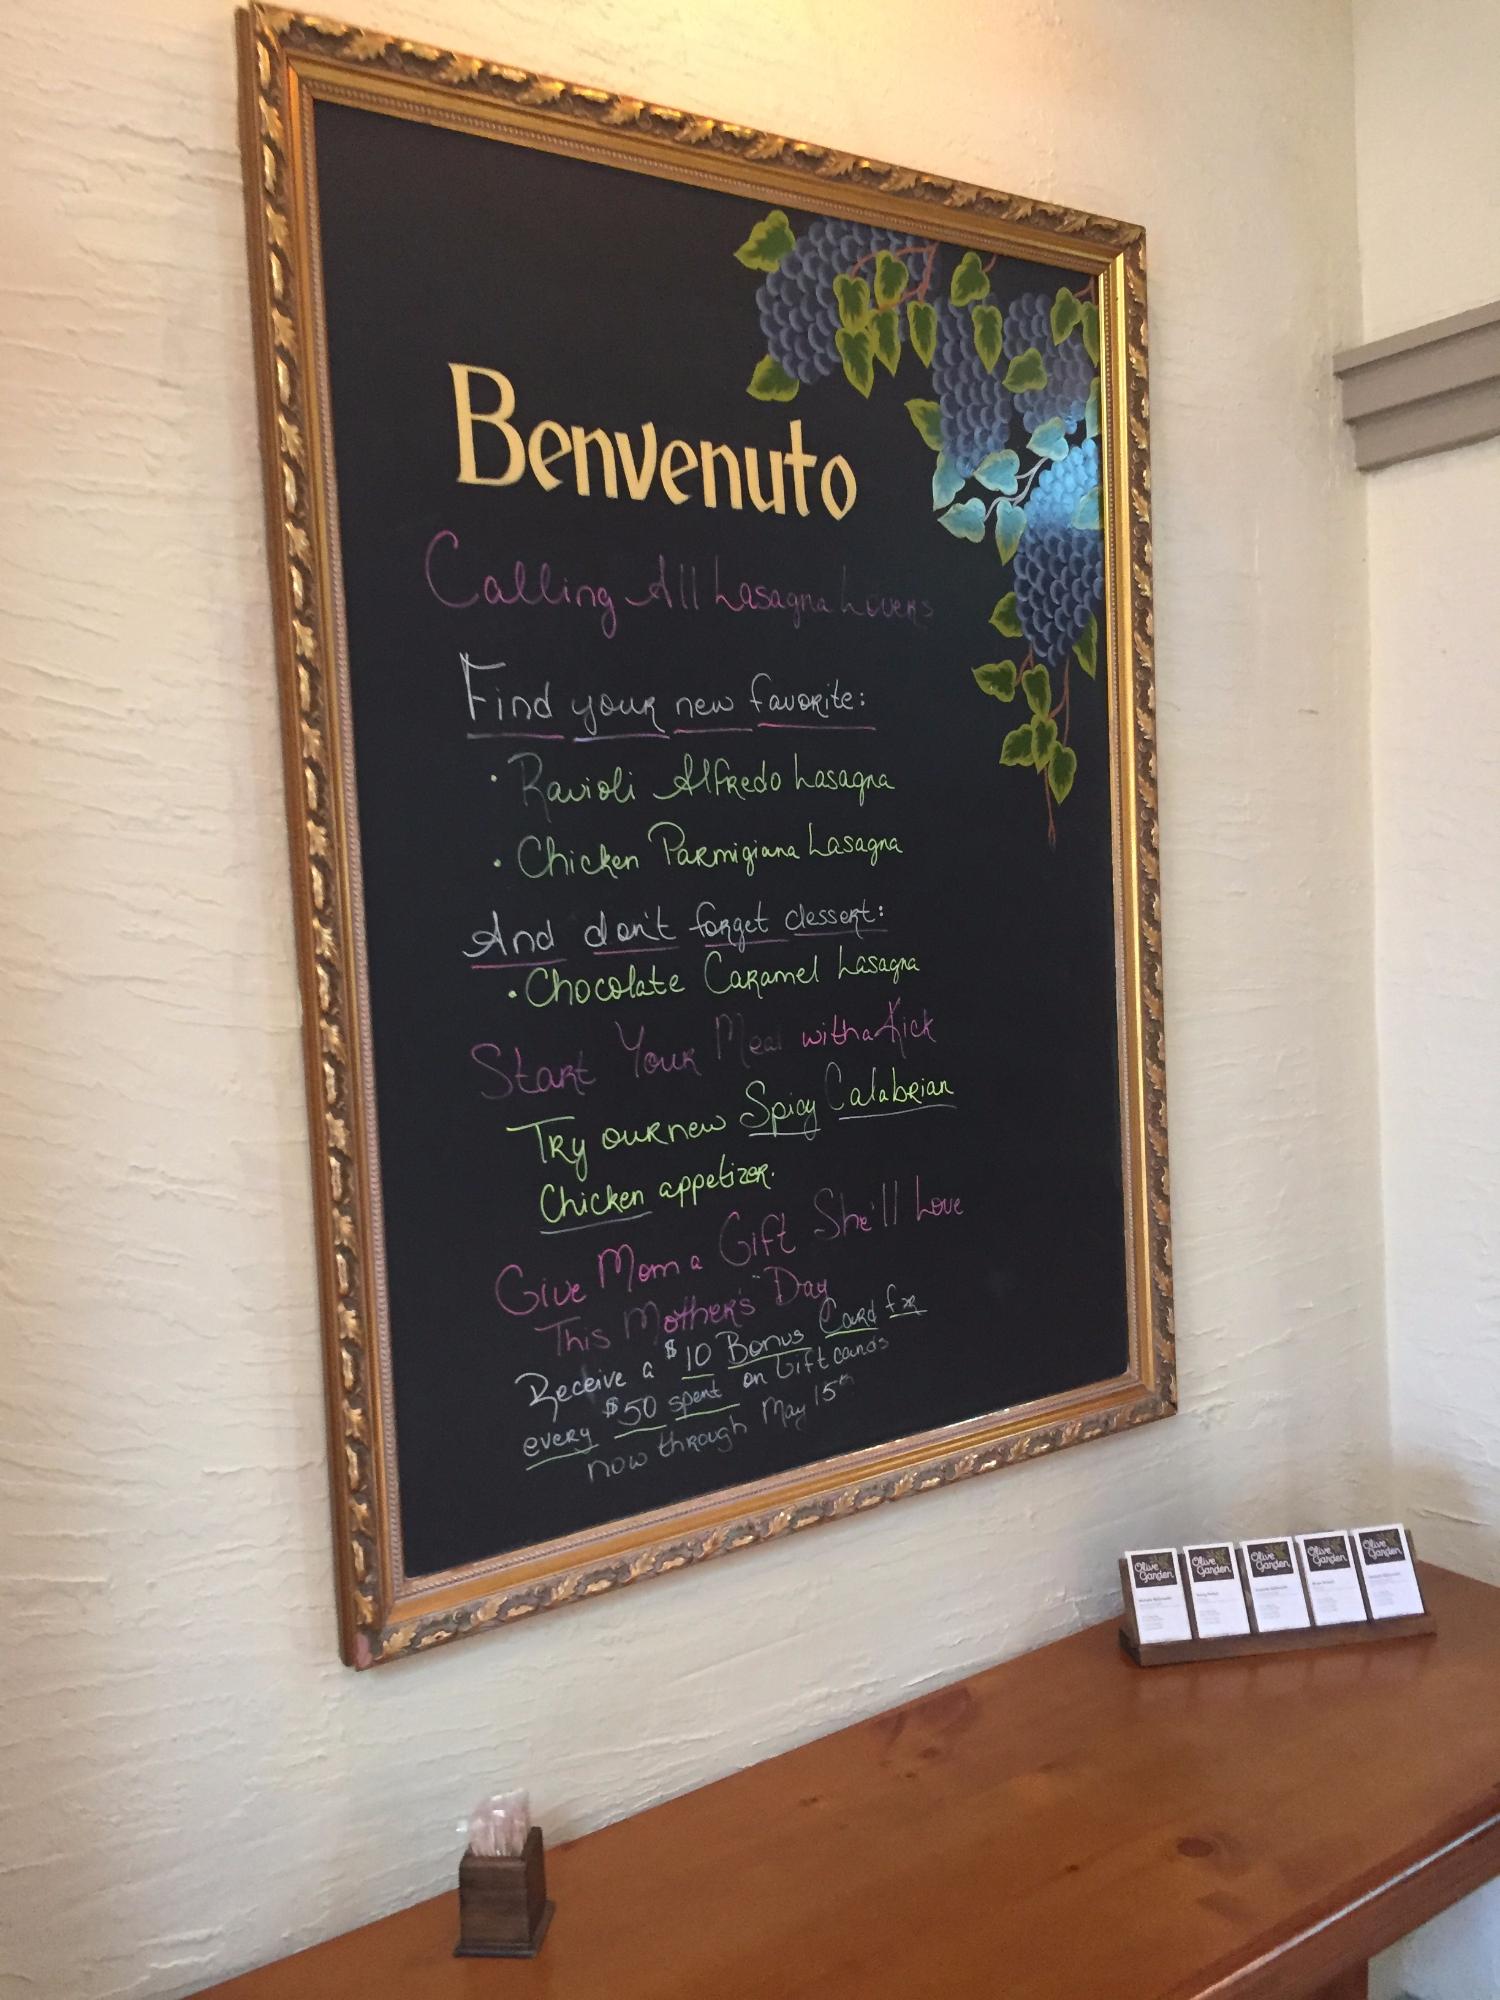 Benvenuto
Calling All Lasagna Lovers
Find your new favorite:
• Ravioli Alfredo Lasagna
• Chicken Parmigiana Lasagna
And don't forget dessert:
• Chocolate Caramel Lasagna
Start Your Meal with a Kick
Try our new Spicy Calabrian
Chicken appetizer.
Give Mom a Gift She'll Love
This Mother's Day
Receive a $10 Bonus Card for
every $50 spent on Gift cards
now through May 15th
Olive Garden Olive Garden Olive Garden Olive Garden Olive Garden